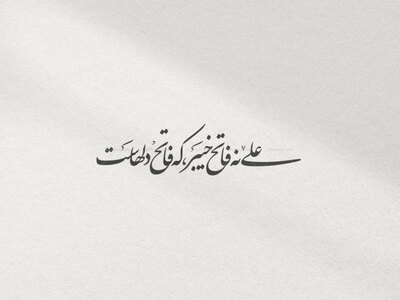 علی نه فاتح خیبر، که فاتح دلهاست